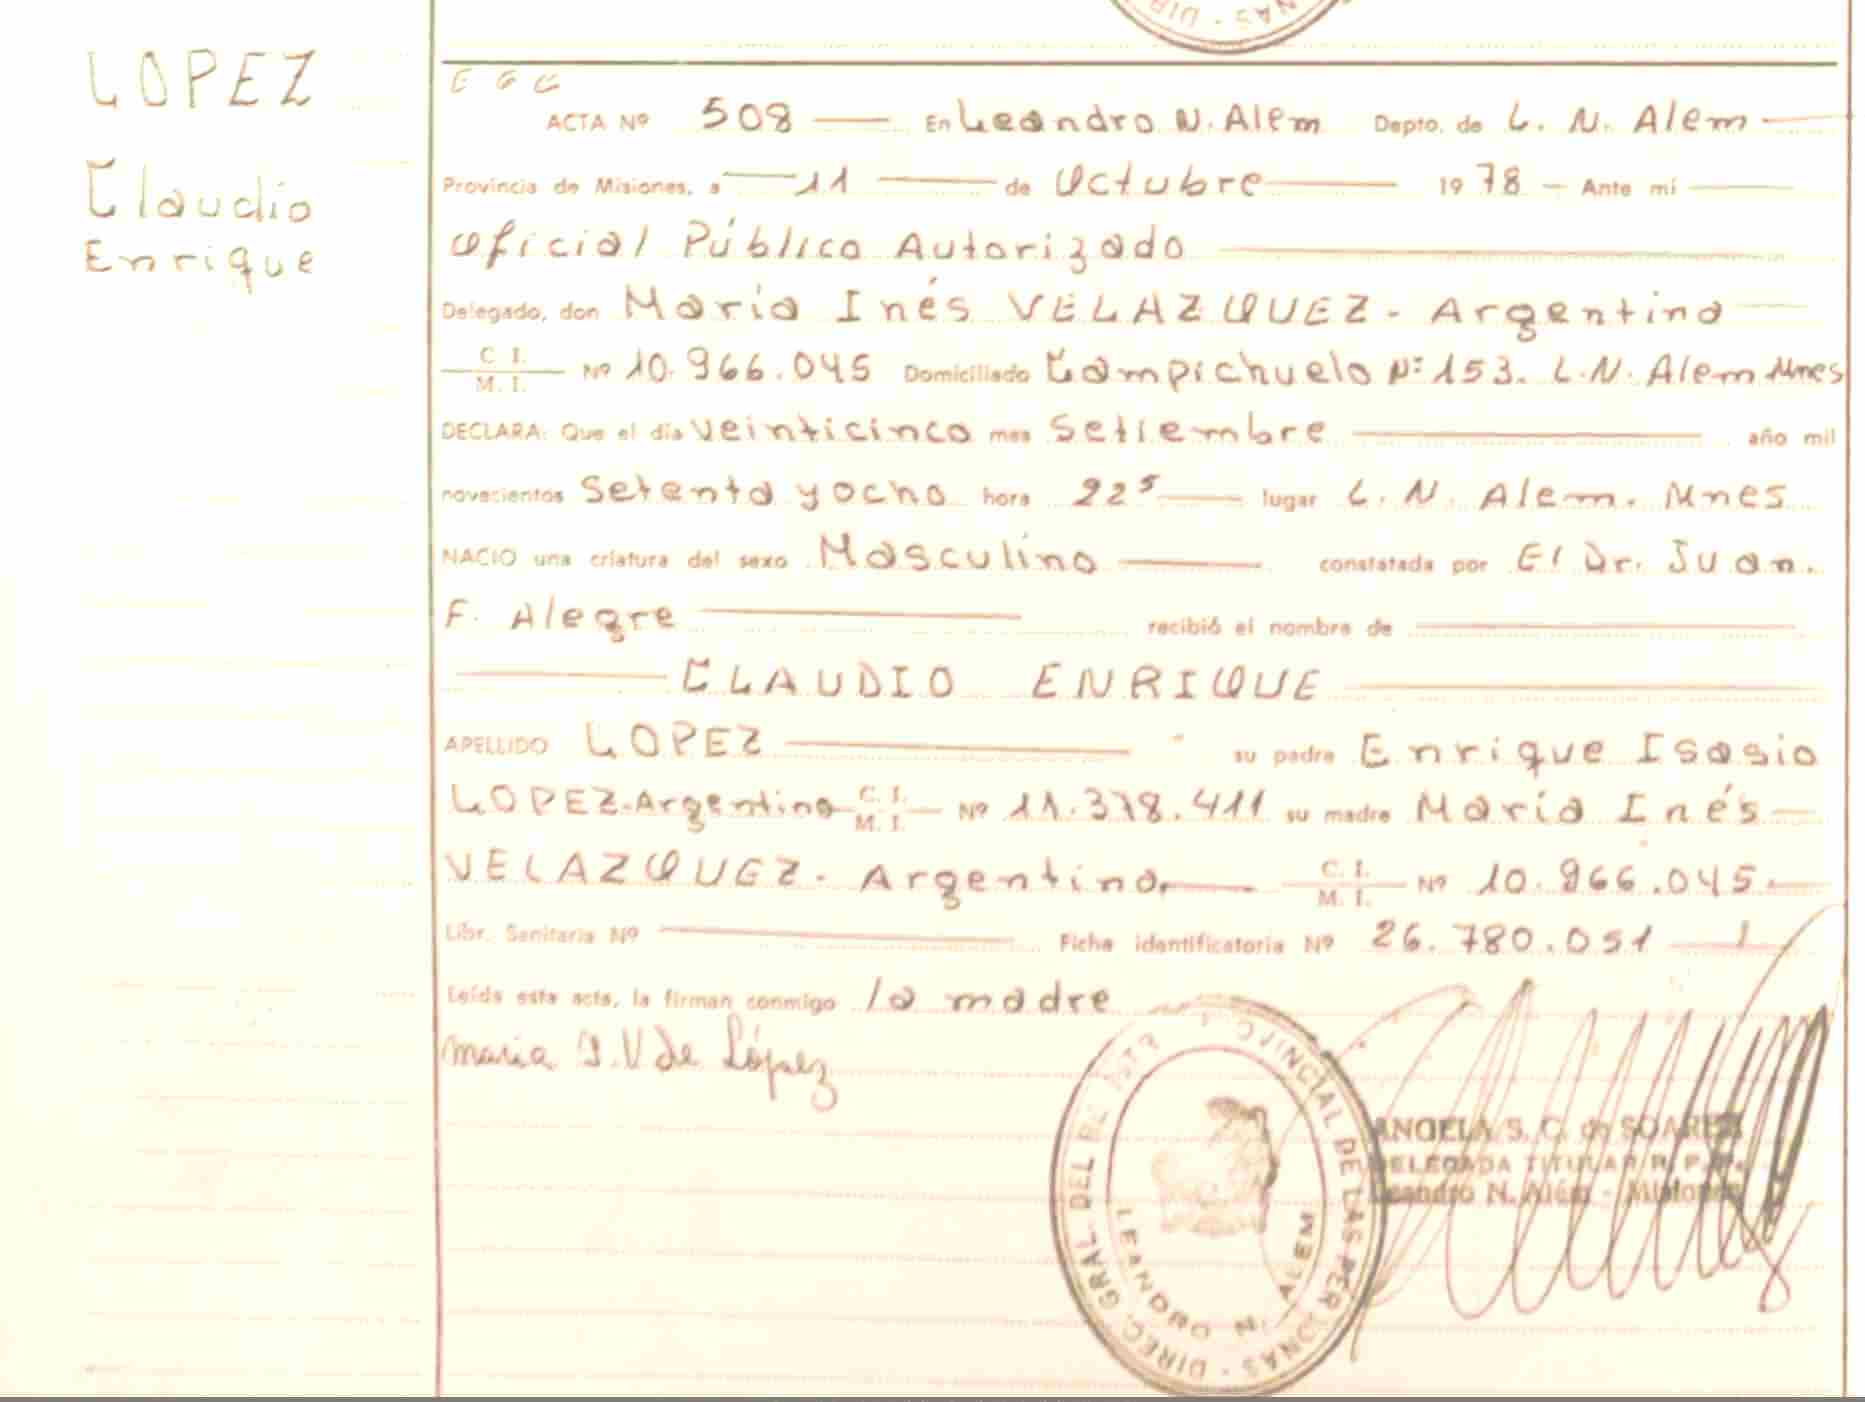 DIR - SAN
LOPEZ
Claudio
Enrique
E G C
ACTA Nº 508 — En Leandro N. Alem Depto. de L. N. Alem
Provincia de Misiones, a 11 de Octubre 1978 - Ante mí
Oficial Público Autorizado
Delegado, don María Inés VELAZQUEZ - Argentina
C. I.
M. I. Nº 10.966.045 Domiciliado Campichuelo Nº 153. L.N. Alem Mnes
DECLARA: Que el día veinticinco mes Setiembre año mil
novecientos Setenta y ocho hora 22⁵ lugar L. N. Alem. Mnes
NACIO una criatura del sexo Masculino constatada por El Dr. Juan.
F. Alegre recibió el nombre de
CLAUDIO ENRIQUE
APELLIDO LOPEZ su padre Enrique Isasio
LOPEZ-Argentino C. I. M. I. Nº 11.378.411 su madre María Inés
VELAZQUEZ. Argentina. C. I. M. I. Nº 10.966.045.
Libr. Sanitaria Nº Ficha identificatoria Nº 26.780.051
Leída esta acta, la firman conmigo la madre
maria I. V de López
ANGELA S. C. de SOAREZ
DELEGADA TITULAR R. P. P.
Leandro N. Além - Misiones
PROVINCIAL DE LAS PERSONAS - DIREC. GRAL. DEL
LEANDRO N. ALEM